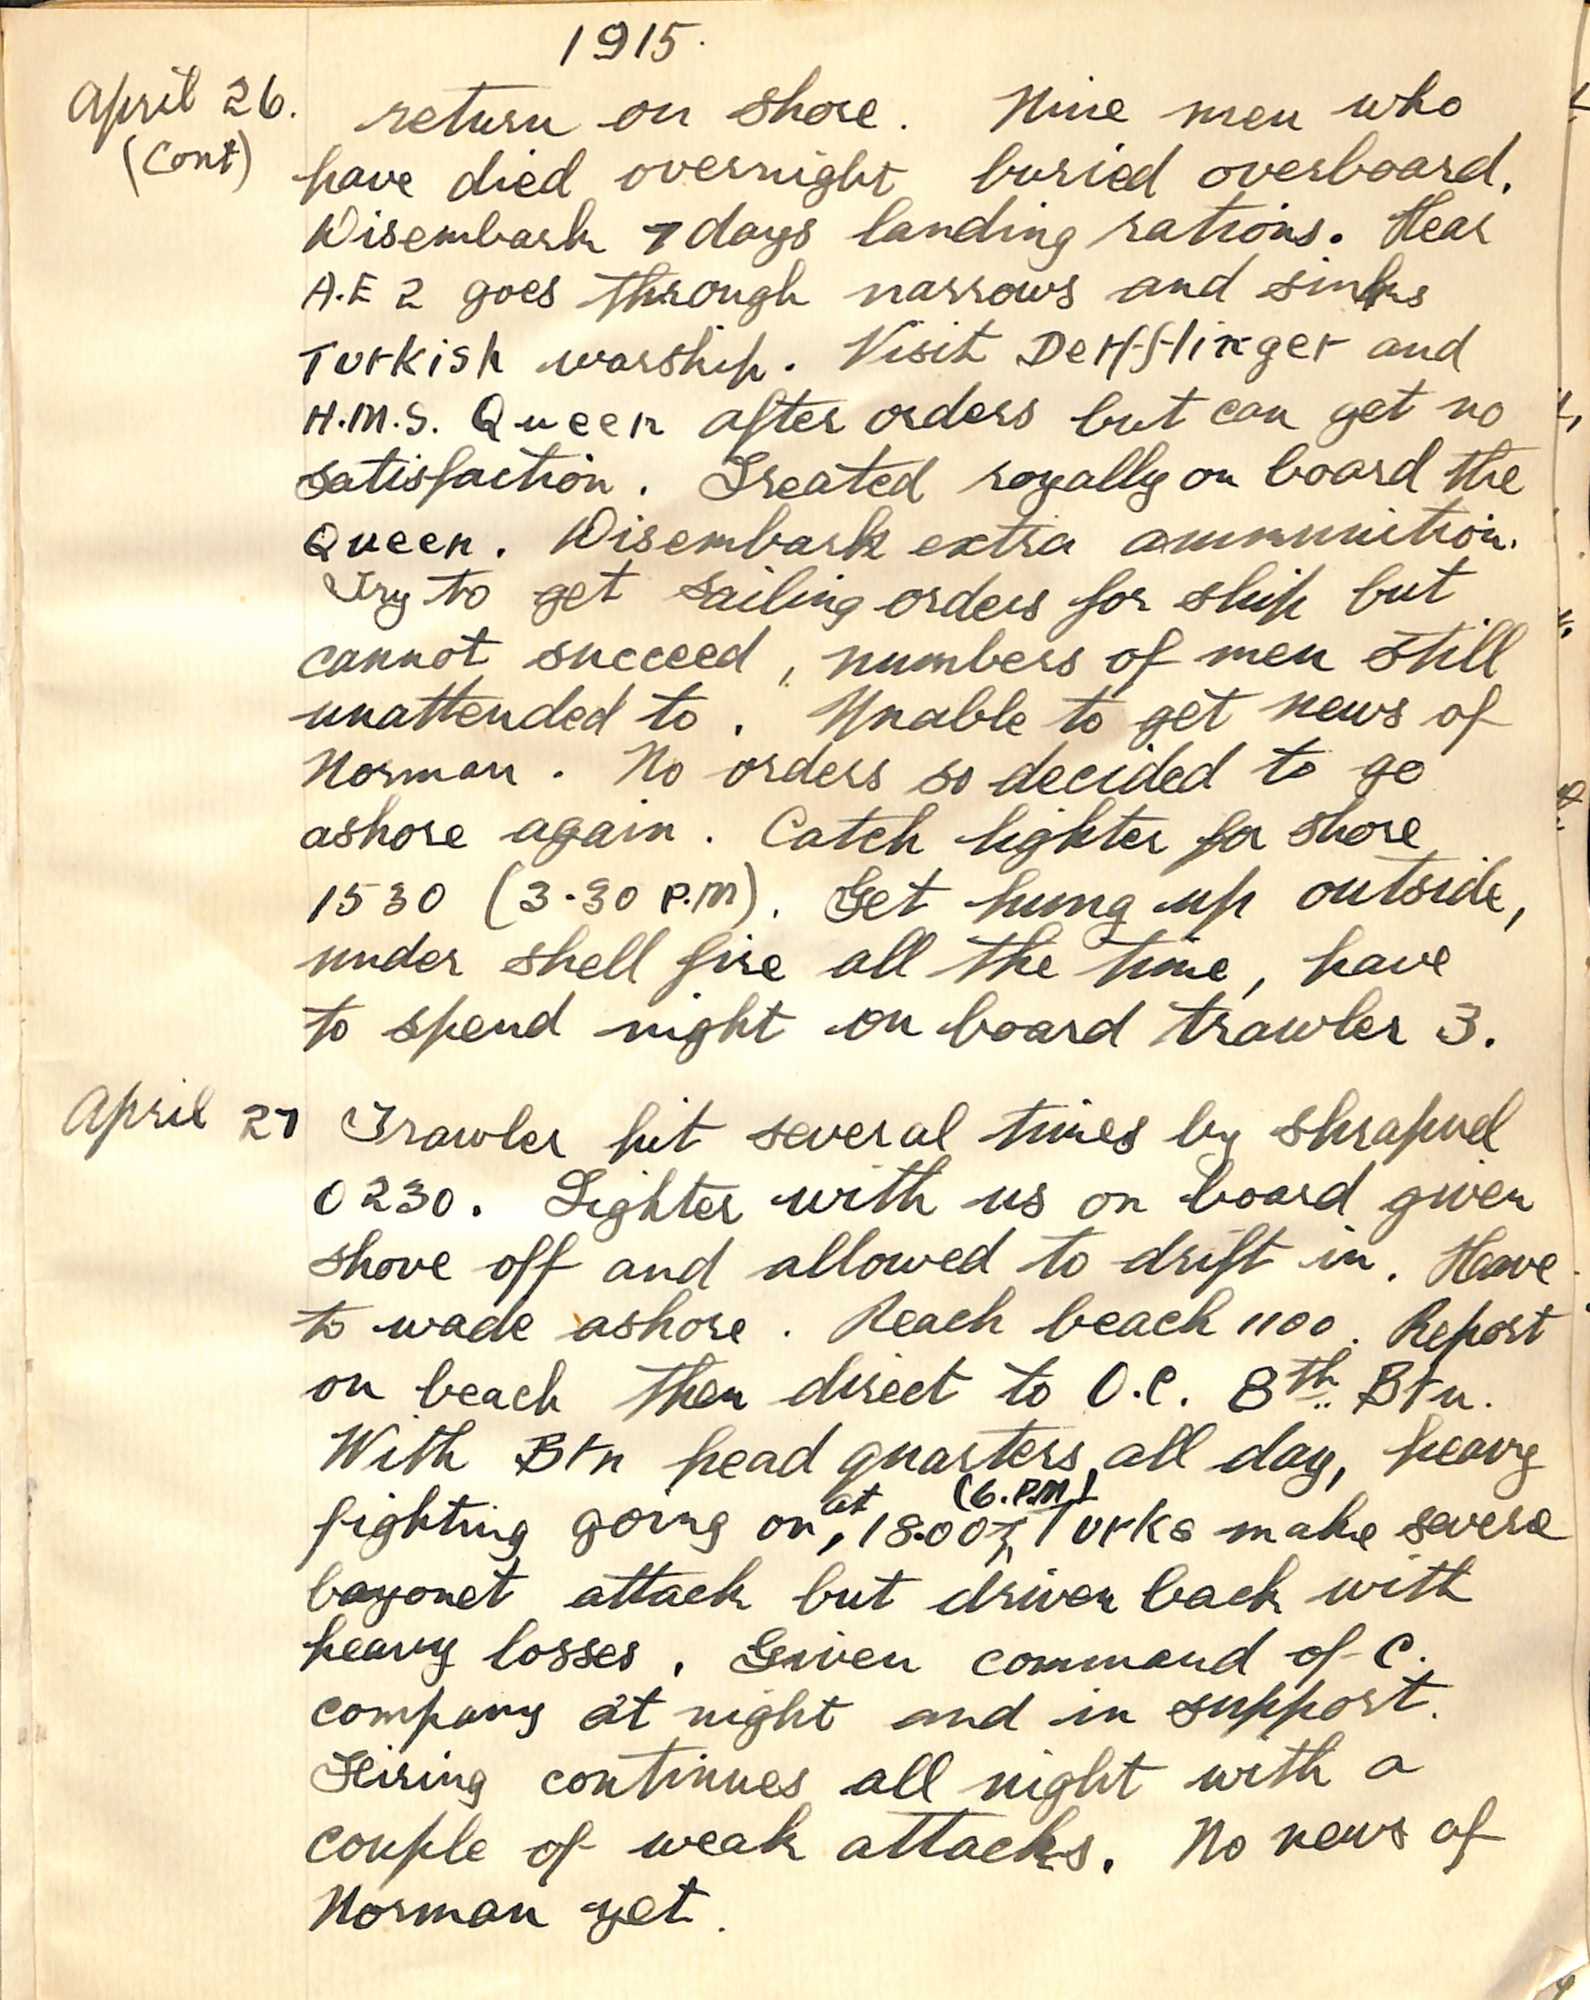 1915.
April 26. return on shore. Nine men who
(Cont) have died overnight buried overboard.
Disembark 7 days landing rations. Hear
A.E 2 goes through narrows and sinks
Turkish warship. Visit Derfflinger and
H.M.S. Queen after orders but can get no
satisfaction. Treated royally on board the
Queen. Disembark extra ammunition.
Try to get sailing orders for ship but
cannot succeed, numbers of men still
unattended to. Unable to get news of
Norman. No orders so decided to go
ashore again. Catch lighter for shore
1530 (3.30 P.M). Get hung up outside,
under shell fire all the time, have
to spend night on board trawler 3.
April 27 Trawler hit several times by shrapnel
0230. Lighter with us on board given
shove off and allowed to drift in. Have
to wade ashore. Reach beach 1100. Report
on beach then direct to O.C. 8th Btn.
With Btn head quarters all day, heavy
(6. P.M)
fighting going on, at 18.00 Turks make severe
bayonet attack but driven back with
heavy losses. Given command of C.
company at night and in support.
Firing continues all night with a
couple of weak attacks. No news of
Norman yet.